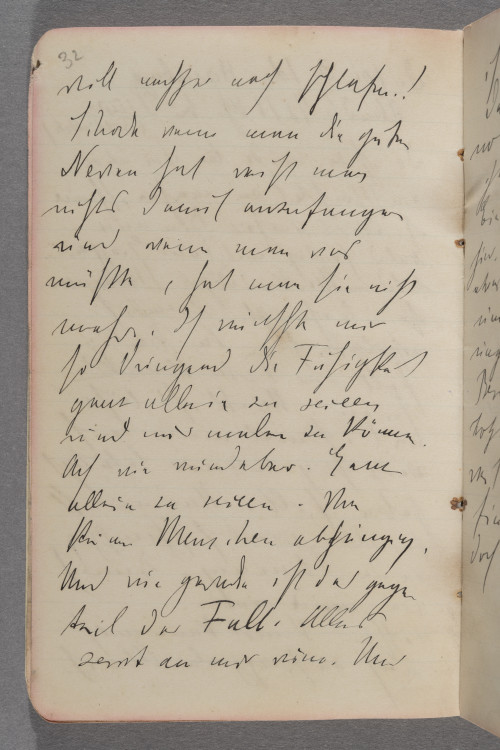 32
will nachher noch schlafen.!
Schade wenn man die guten
Nerven hat weiß man
nichts damit anzufangen
und wenn man was
müßte, hat man sie nicht
mehr. Ich möchte mir
so dringend die Fähigkeit
ganz allein zu
und nur malen zu können.
Ach wie wunderbar. Ganz
allein zu - Von
keinem Menschen abhängig.
Und wie gerade ist das gegen
teil der Fall. Alles
zerrt an mir rum. Und